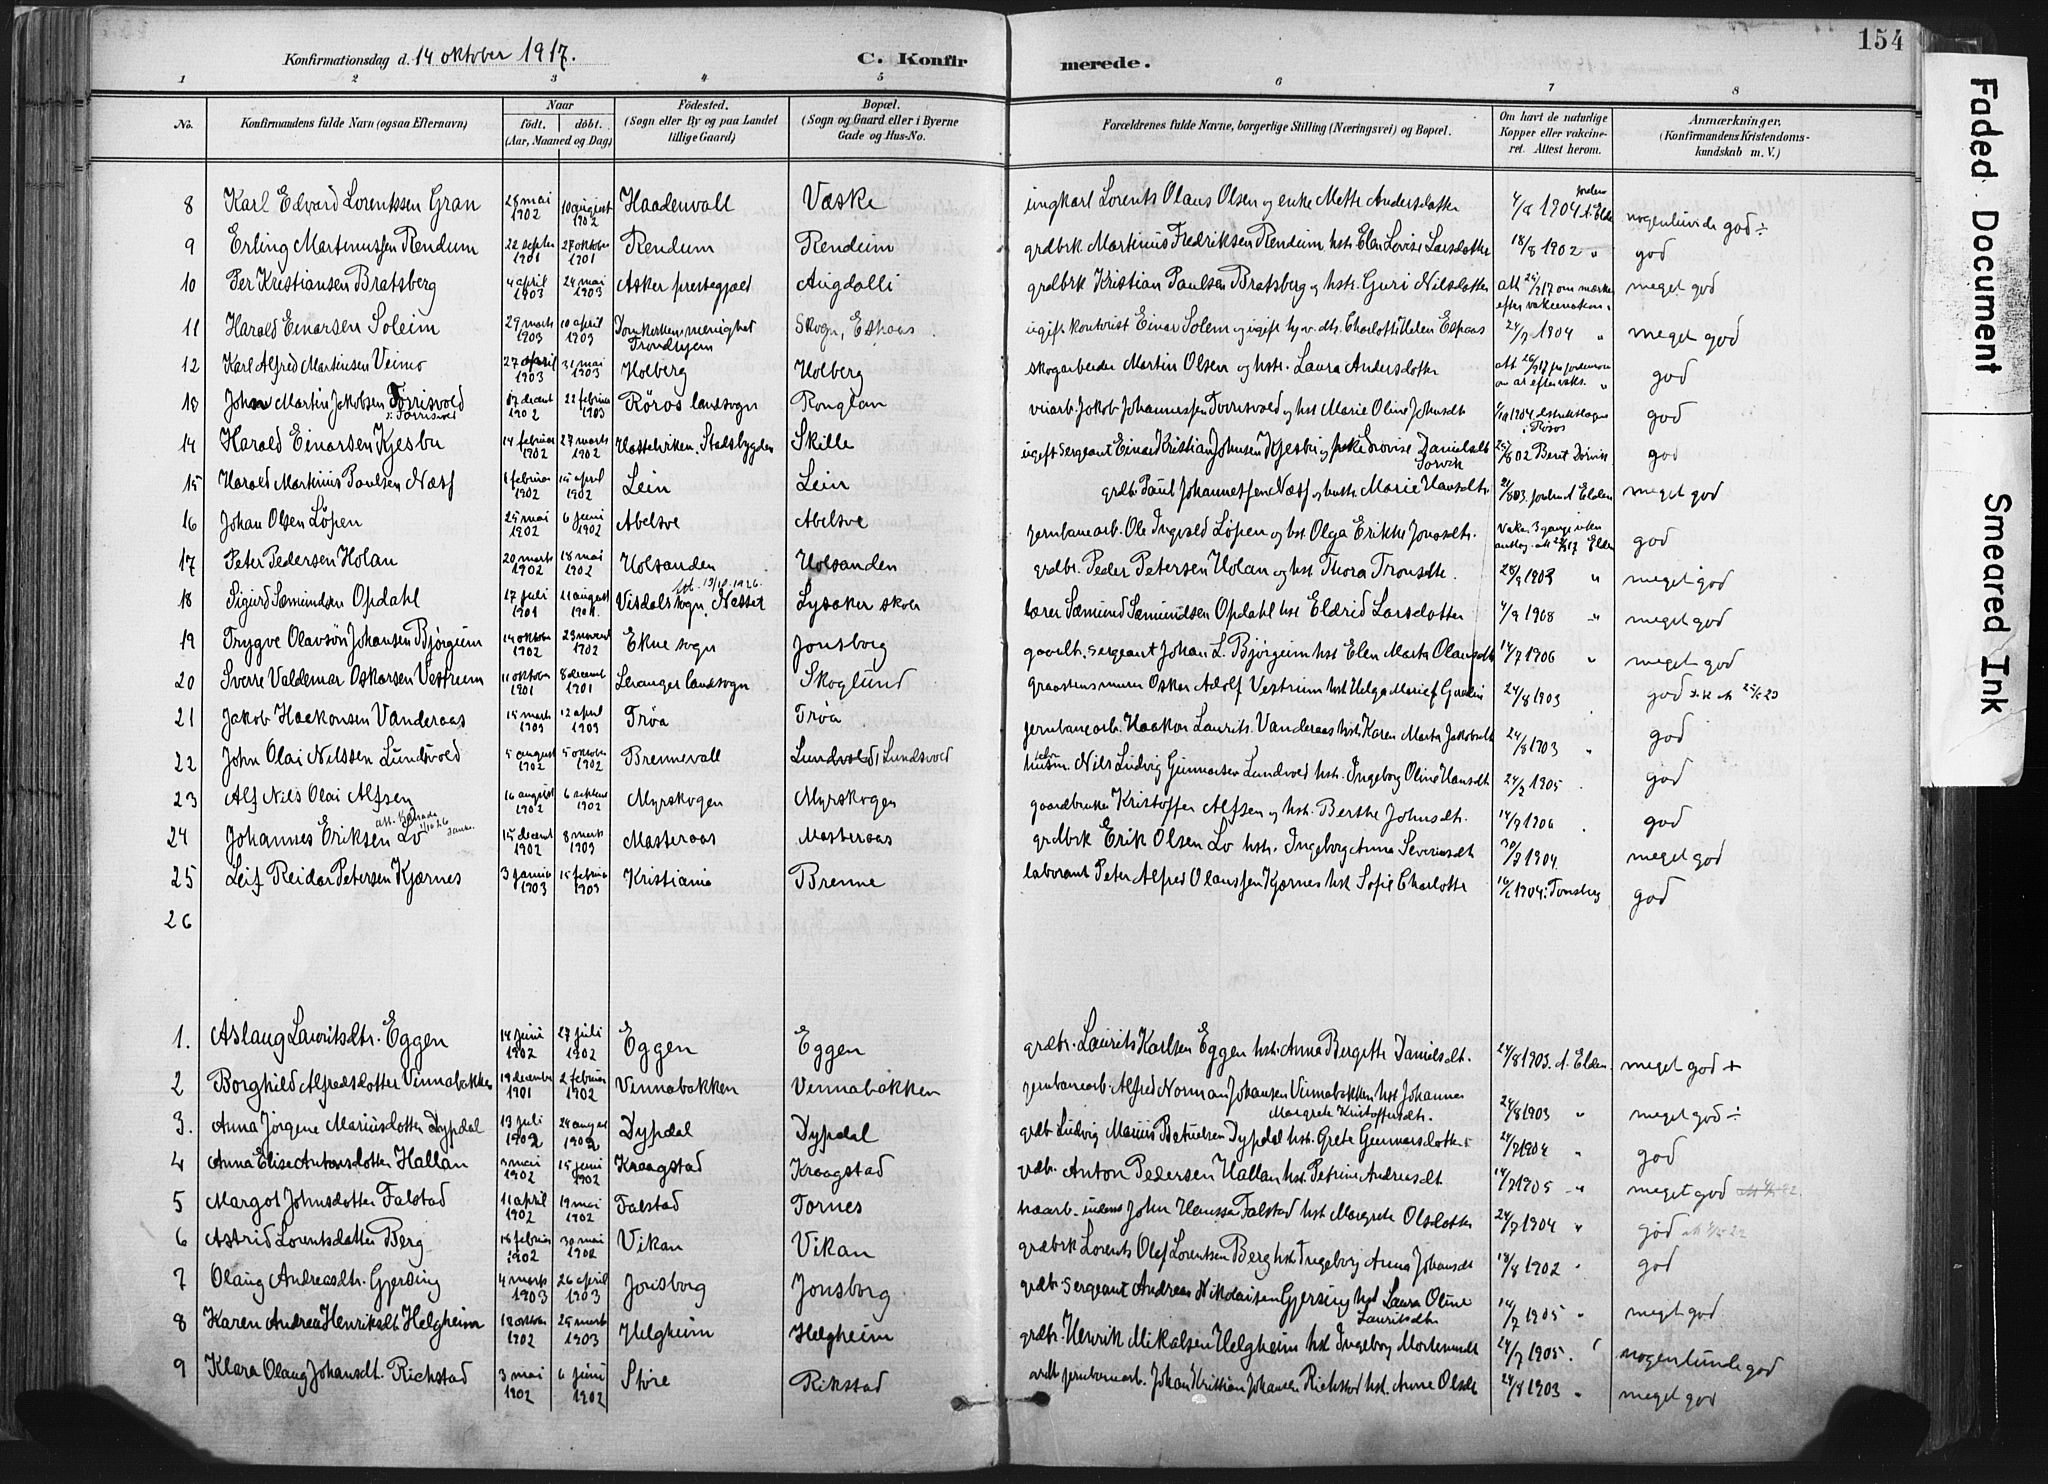 154
Konfirmationsdag d. 14 oktober 1917.
C. Konfirmerede.
1 2 3 4 5 6 7 8
No.
Konfirmandens fulde Navn (ogsaa Efternavn)
Naar
født. døbt.
(Aar, Maaned og Dag)
Fødested.
(Sogn eller By og paa Landet tillige Gaard)
Bopæl.
(Sogn og Gaard eller i Byerne Gade og Hus-No.
Forældrenes fulde Navne, borgerlige Stilling (Næringsvei) og Bopæl.
Om havt de naturlige Kopper eller vakcineret. Attest herom.
Anmærkninger.
(Konfirmandens Kristendomskundskab m. V.)
8 Karl Edvard Lorentssen Gran 25 mai 1902 10 august 1902 Haadenvall Væske ungkarl Lorents Olaus Olsen og enke Mette Andersdatter 1904 nogenlunde god ÷
9 Erling Martinussen Rendum 22 septbr 1901 27 oktober 1901 Rendum Rendum grdbrk Martinus Fredriksen Rendum hstr. Elen Lovise Larsdatter 18/8 1902 " god
10 Per Kristiansen Bratsberg 4 april 1903 24 mai 1903 Asker prestegjæld Augdalli grdbrk Kristian Paulsen Bratsberg og hstr. Guri Nilsdatter meget god
11 Harald Einarsen Soleim 29 mars 1903 10 april 1903 Domkirkens menighet Trondhjem Skogn, Espaas ugift kontorist Einar Solem og ugift Charlotte Helen Espaas 1904 " meget god
12 Karl Alfred Martinsen Veimo 27 april 1903 31 mai 1903 Holberg Holberg skogarbeider Martin Olsen og hstr. Laura Andersdatter god
13 John Martin Jakobsen Torrisvold 1902 22 februar 1903 Röros landsogn Ronglan Jakob Johannessen Torrisvold og hst Marie Oline Johnsdt 1904 Röros god
14 Harald Einarsen Kjesbu 14 februar 1902 27 mars 1902 Stadsbygden Skille ugift sergeant Einar Kristian Johnsen Kjesbu og Lovise Danielsdt 02 Berit god
15 Harald Martinus Paulsen Næss februar 1902 15 april 1902 Lein Lein grdbr. Paul Johannessen Næss og hustr. Marie Hansdtr. meget god
16 Johan Olsen Løpen 25 mai 1902 6 juni 1902 Abelsve Abelsve jernbanearb. Ole Ingvald Løpen og hst. Olga Erikke Jonasdtr. Elden god
17 Peter Pedersen Holan 20 mars 1902 18 mai 1902 Holsanden Holsanden grdbr. Peder Petersen Holan og hst. Thora Tronsdtr. 1903 " meget god
18 Sigurd Sæmundsen Opdahl 17 juli 1901 11 august 1901. Visdals sogn. Nesset Lysaker skole lærer Sæmund Sæmundsen Opdahl hst Eldrid Larsdatter 1908 " meget god
19 Trygve Olavsön Johansen Bjørgum 14 oktober 1902 23 novembr 1902 Ekne sogn Jonsborg sergeant Johan L. Bjørgum hst Elen Marta Olausdt 14/7 1906 " meget god
20 Sverre Valdemar Oskarsen Vestrum 11 oktober 1901 8 decembr 1901 Levanger landsogn Skoglund graastensmurer Oskar Adolf Vestrum hst Helga Marie 24/8 1903 god
21 Jakob Haakonsen Vanderaas 15 mars 1903 12 april 1903 Trøa Trøa jernbanearb. Haakon Laurits Vanderaas hst. Karen Marta Jakobsdt 24/8 1903 " god
22 John Olai Nilssen Lundsvold 5 august 1902 5 oktober 1902 Brennevall Lundvold / Lundsvold husm. Nils Ludvig Gunnarsen Lundvold hst. Ingeborg Oline Hansdt 24/7 1905 god
23 Alf Nils Olai Alfsen 16 august 1902 6 1902 Myrskogen Myrskogen gaardbruker Kristoffer Alfsen og hst. Berthe Johnsdt. 14/7 1906 god
24 Johannes Eriksen Lo 15 decembr 1902 8 mars 1903 Masteraas Masteraas grdbrk Erik Olsen Lo hstr. Ingeborg Anna Severinsdt 1904 meget god
25 Leif Reidar Petersen Kjærnes 3 januar 1903 15 februar 1903 Kristiania Brenne laborant Peter Alfred Olaussen Kjærnes hst Sofie Charlotte 1904 Tonsberg god
26
1. Aslaug Lauritsdtr. Eggen 14 juni 1902 27 juli 1902 Eggen Eggen grdbr. Laurits Karlsen Eggen hst. Anna Bergette Danielsdt. 24/8 1903. A. Elden meget god +
2 Borghild Alfredsdotter Vinnabakken 19 december 1901 2 februar 1902 Vinnabakken Vennabakken jernbanearb. Alfred Norman Johansen Vinnabakken hst Johanna Margrete Kristoffersdtr. 24/8 1903 " meget god ÷
3. Anna Jørgene Mariusdotter Dypdal 13 juli 1902 24 august 1902 Dypdal Dypdal grdb. Ludvig Marius Betuelsen Dypdal hst. Grete Gunnarsdotter 24/7 1904 " god
4 Anna Elise Antonsdotter Hallan 3 mai 1902 15 juni 1902 Kraagstad Kraagstad grdbr. Anton Pedersen Hallan hst. Petrine Andreasdt 14/7 1905 " meget god
5 Margot Johnsdotter Falstad 11 april 1902 19 mai 1902 Falstad Tornes John Hanssen Falstad hst. Margrete Olsdotter 24/7 1904 " god
6 Astrid Lorentsdatter Berg 16 februar 1902 30 mai 1902 Vikan Vikan grdbrk Lorents Olef Lorentsen Berg hst. Ingeborg Anna Johansdt 18/8 1902 god
7 Olaug Andreasdtr. Gjersing 4 mars 1903 26 april 1903 Jonsborg Jonsborg grdbr. sergeant Andreas Nikolaisen Gjersing hst Laura Oline Lauritsdtr 14/7 1905 " meget god
8 Karen Andrea Henriksdt Helgheim 18 oktobr 1902 25 mars 1903 Helgheim Helgheim grdbr. Henrik Mikalsen Helgheim hst Ingeborg Mortensdt 24/7 1905. " nogenlunde god
9 Klara Olaug Johansdt. Richstad 3 mai 1902 6 juni 1902 Støre Rikstad jernbanearb. Johan Kristian Johansen Richstad hst. Anne Olsdt 24/8 1903 " meget god
Faded Document
Smeared Ink